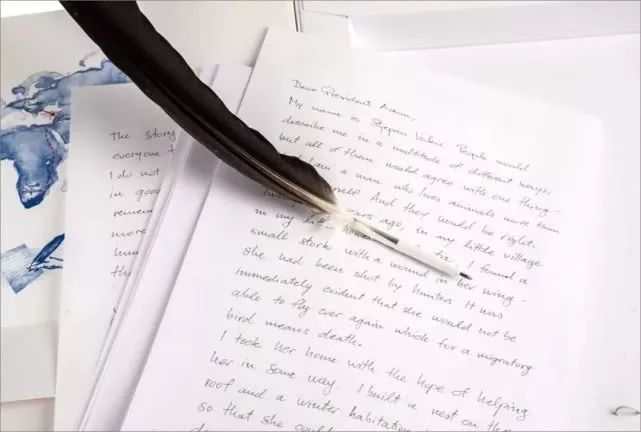 The story
everyone t
I do not
in good
remem
more
hun
th
Dear President Aoun,
My name is Stjepan Vokic People would
describe me in a multitude of different ways,
but all of them would agree with one thing -
I am a man who lives animals more than
And they would be right.
years ago, in my little village
in my I found a
small stork with a wound in her wing -
she had been shot by hunters It was
immediately evident that she would not be
able to fly ever again which for a migratory
bird means death.
I took her home with the hope of helping
her in some way. I built a nest on the
roof and a winter habitation
so that she could